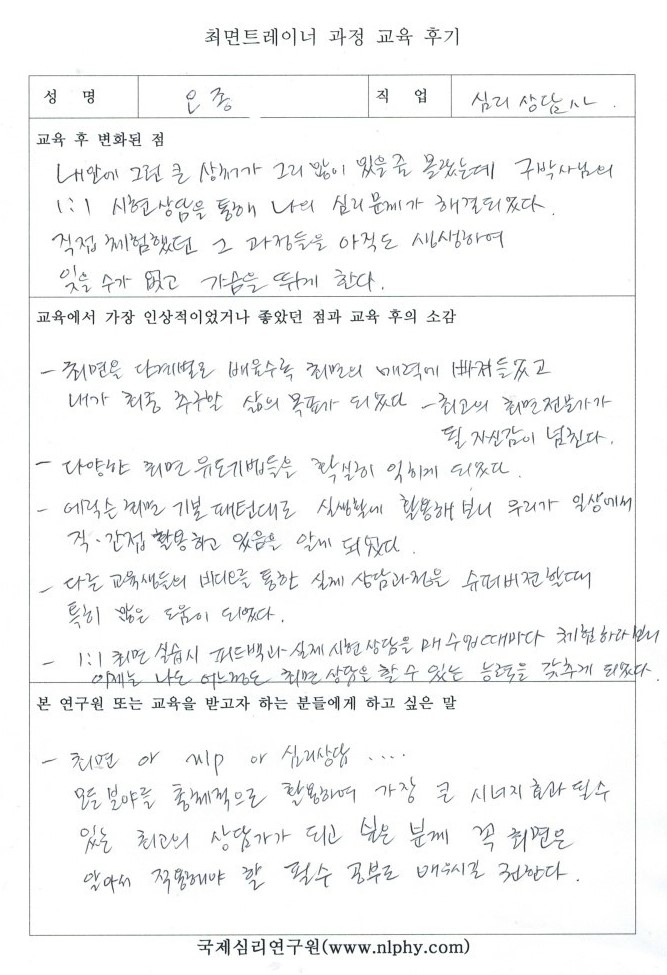 최면트레이너 과정 교육 후기
성 명 오종 직 업 심리상담사.
교육 후 변화된 점
내안에 그런 큰 상처가 그리 많이 있을 줄 몰랐는데 구박사님의
1:1 시현상담을 통해 나의 심리문제가 해결되었다.
직접 체험했던 그 과정들을 아직도 생생하여
잊을 수가 없고 가슴을 뛰게 한다.
교육에서 가장 인상적이었거나 좋았던 점과 교육 후의 소감
- 최면을 단계별로 배울수록 최면의 매력에 빠져들었고
내가 최종 추구할 삶의 목표가 되었다 - 최고의 최면전문가가
될 자신감이 넘친다.
- 다양한 최면유도기법들을 확실히 익히게 되었다.
- 에릭슨최면 기본패턴대로 실생활에 활용해 보니 우리가 일생에서
직·간접 활용하고 있음을 알게 되었다.
- 다른 교육생들의 비디오를 통한 실제 상담과정을 슈퍼비젼할때
특히 많은 도움이 되었다.
- 1:1 최면 실습시 피드백과 실제 시현상담을 매 수업때마다 체험하다보니
이제는 나도 어느정도 최면상담을 할 수 있는 능력을 갖추게 되었다.
본 연구원 또는 교육을 받고자 하는 분들에게 하고 싶은 말
- 최면 or nlp or 심리상담 ....
모든 분야를 통체적으로 활용하여 가장 큰 시너지 효과 될수
있는 최고의 상담가가 되고 싶은 분께 꼭 최면은
알아서 적용해야 할 필수 공부로 배우시길 권한다.
국제심리연구원(www.nlphy.com)